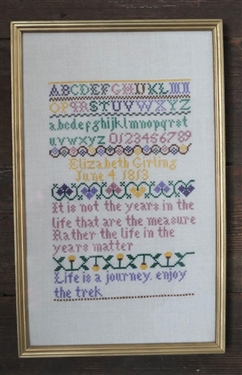 ABCDEFGHIJKLM
OPQRSTUVWXYZ
abcdefghijklmnopqrst
uvwxyz 0123456789
Elizabeth Girling
June 4, 1813
It is not the years in the
life that are the measure
Rather the life in the
years matter
Life is a journey, enjoy
the trek